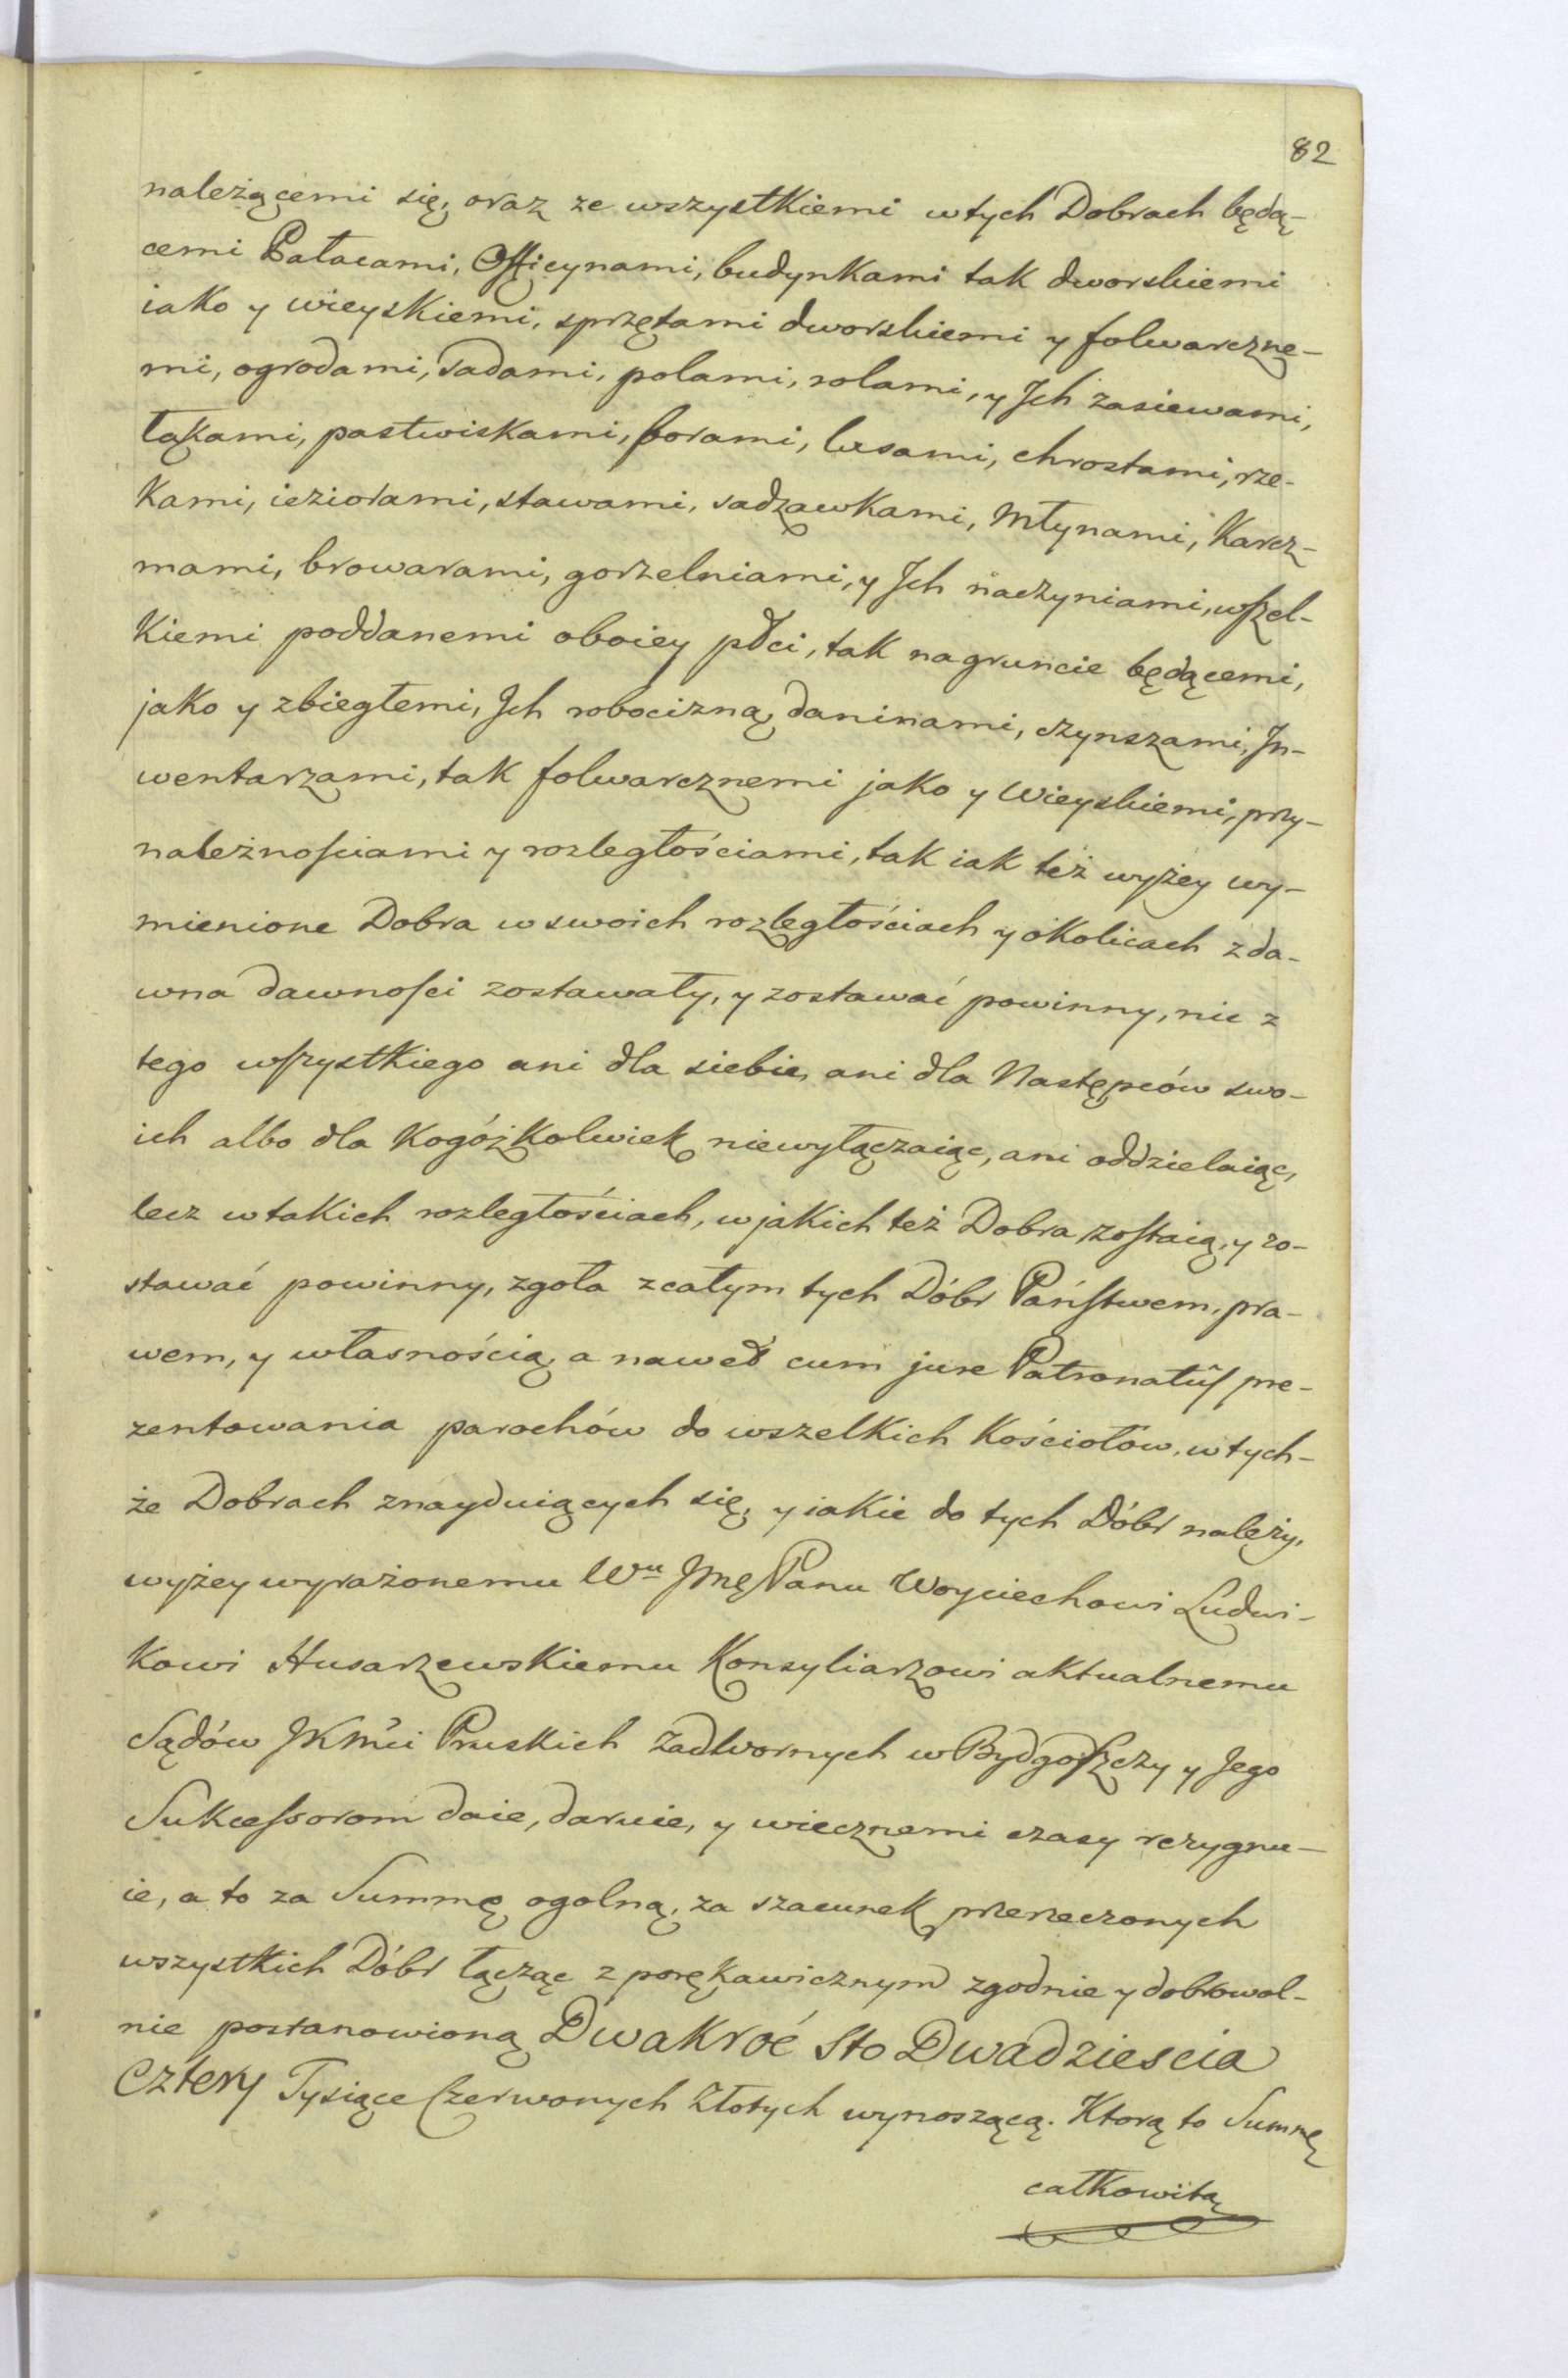 82
należącemi się, oraz ze wszystkiemi w tych Dobrach będą-
cemi Pałacami, Officynami, budynkami tak dworskiemi
iako y wieyskiemi, sprzętami dworskiemi y folwarczne-
mi, ogrodami, sadami, polami, rolami, y Ich zasiewami,
łąkami, pastwiskami, borami, lasami, chrostami, rze-
kami, ieziorami, stawami, sadzawkami, Młynami, Karcz-
mami, browarami, gorzelniami, y Ich naczyniami, wszel-
kiemi poddanemi oboiey płci, tak na gruncie będącemi,
jako y zbiegłemi, Ich robocizną, daninami, czynszami, In-
wentarzami, tak folwarcznemi jako y Wieyskiemi, przy-
należnościami y rozległościami, tak iak też wyżey wy-
mienione Dobra w swoich rozległościach y okolicach z da-
wna dawności zostawały, y zostawać powinny, nic z
tego wszystkiego ani dla siebie, ani dla Następców swo-
ich albo dla kogóżkolwiek niewyłączaiąc, ani oddzielaiąc,
lecz w takich rozległościach, w jakich też Dobra zostaią, y zo-
stawać powinny, zgoła z całym tych Dóbr Państwem, pra-
wem, y własnością, a nawet cum jure Patronatûs pre-
zentowania parochów do wszelkich Kościołow, w tych-
że Dobrach znayduiących się, y iakie do tych Dóbr należy,
wyżey wyrażonemu Wu Jmę Panu Woyciechowi Ludwi-
kowi Husarzewskiemu Konsyliarzowi aktualnemu
Sądów JKMci Pruskich Zadwornych w Bydgoszczy y Jego
Sukcessorom daie, daruie, y wiecznemi czasy rezygnu-
ie, a to za Summę ogolną, za szacunek przerzeczonych
wszystkich Dóbr łącząc z porękawicznym zgodnie y dobrowol-
nie postanowioną Dwakroć Sto Dwadziescia
Cztery Tysiące Czerwonych Złotych wynoszącą. Ktorą to Summę
całkowitą